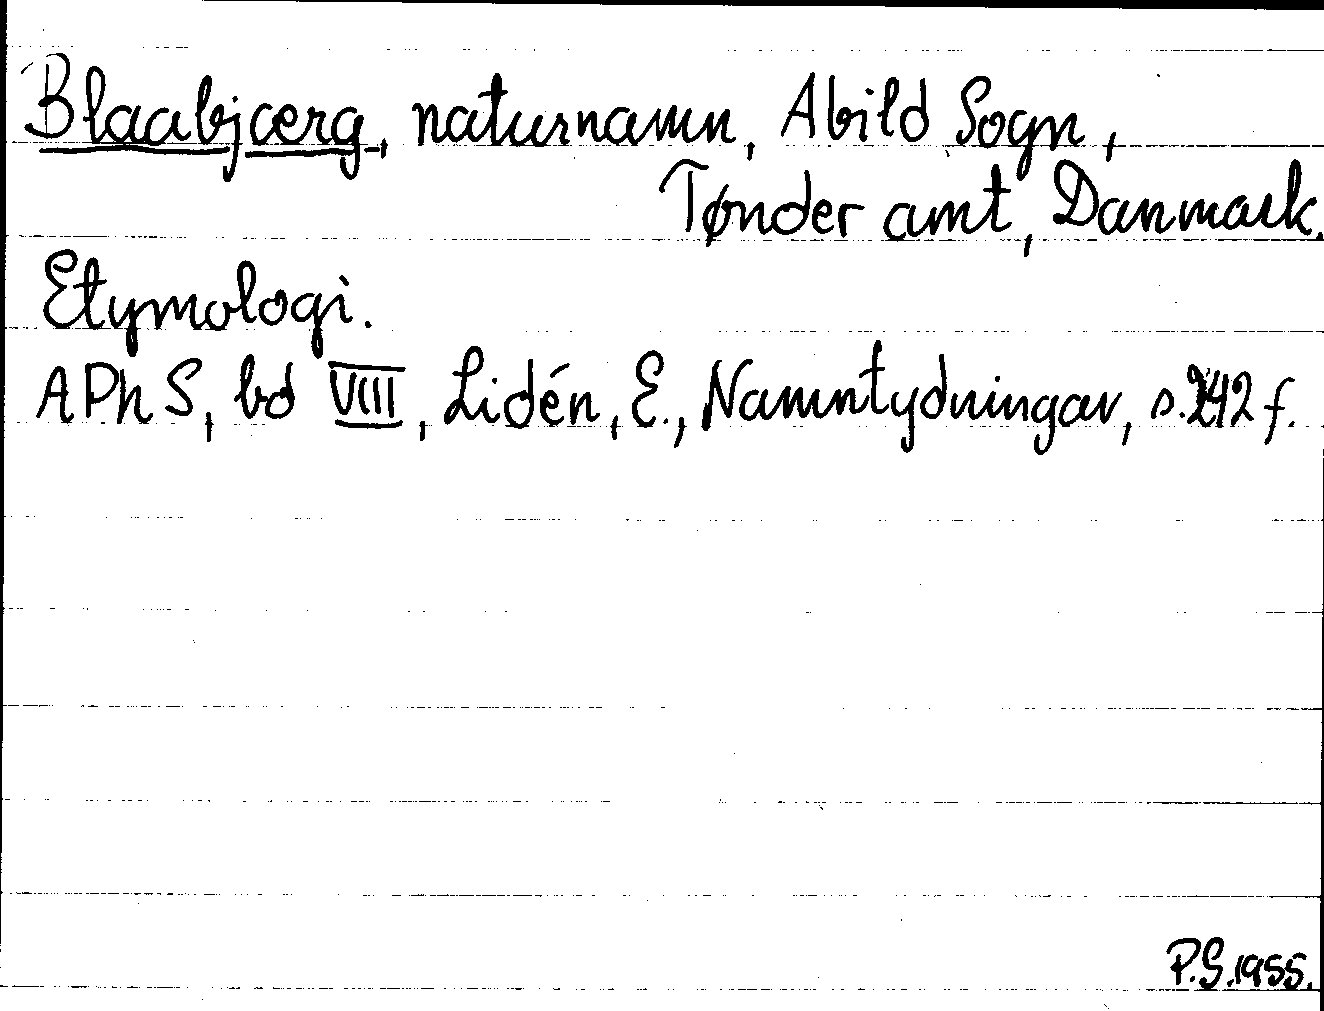 Blaabjærg, naturnamn, Abild Sogn,
Tønder amt, Danmark.
Etymologi.
APhS, bd VIII, Lidén, E., Namntydningar, s. 242 f.
P.S. 1955.